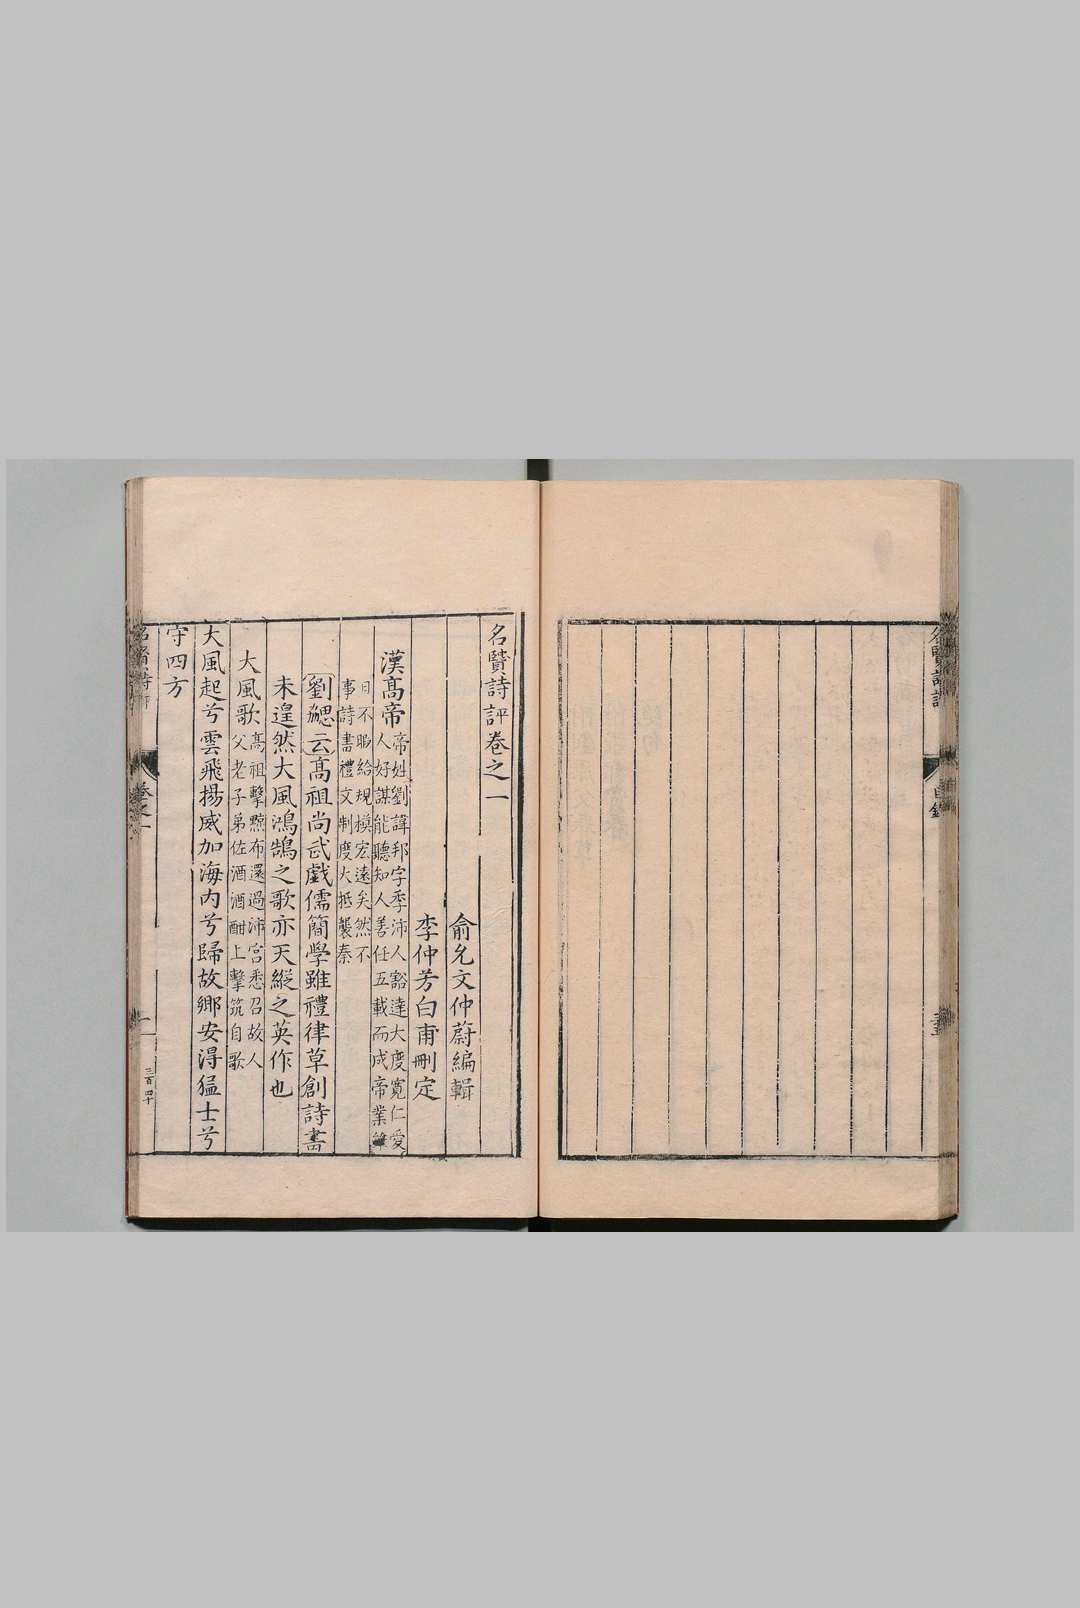 名賢詩評
目錄
名賢詩評卷之一
俞允文仲蔚編輯
李仲芳白甫刪定
漢高帝
帝姓劉諱邦字季沛人豁達大度寬仁愛
人好謀能聽知人善任五載而成帝業雖
日不暇給規模宏遠矣然不
事詩書禮文制度大抵襲秦
劉勰云高祖尚武戲儒簡學雖禮律草創詩書
未遑然大風鴻鵠之歌亦天縱之英作也
大風歌
高祖擊黥布還過沛宮悉召故人
父老子弟佐酒酒酣上擊筑自歌
大風起兮雲飛揚威加海內兮歸故鄉安得猛士兮
守四方
名賢詩評
卷之一
一
三百四十